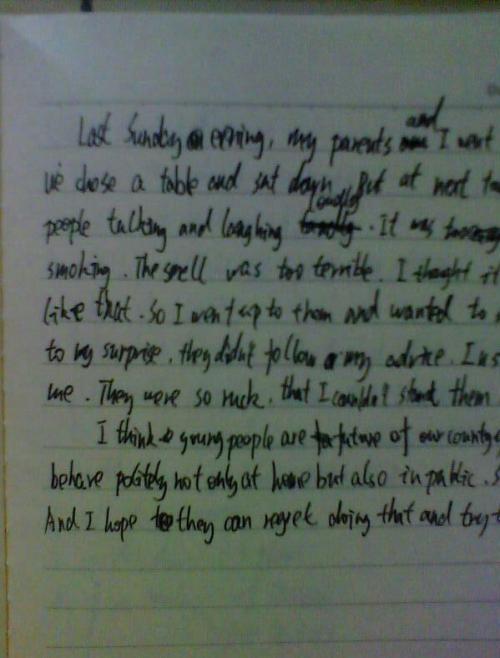 Last Sunday evening, my parents and I went
We chose a table and sat down. But at next
people talking and laughing loudly. It was
smoking. The smell was too terrible. I thought it
like that. So I went up to them and wanted to
to my surprise, they didn't follow my advice.
me. They were so ruck, that I couldn't stand them
I think young people are future of our country
behave politely not only at home but also in public.
And I hope they can regret doing that and try